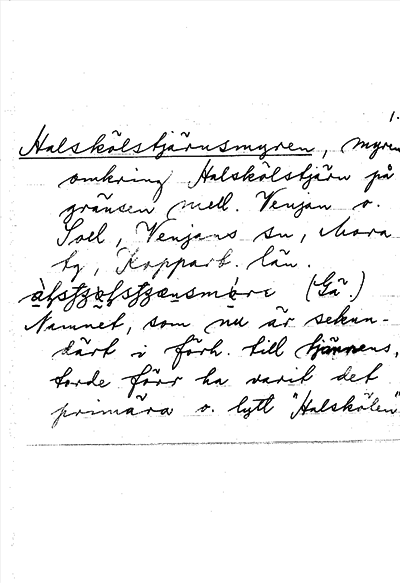 1.
Halskölstjärnsmyren, myren
omkring Halskölstjärn på
gränsen mell. Venjan o.
Soll, Venjans sn, Mora
tg, Kopparb. län.
(Gä.)
Namnet, som nu är sekun-
därt i förh. till tjärnens,
torde förr ha varit det
primära o. lytt "Halskölen"